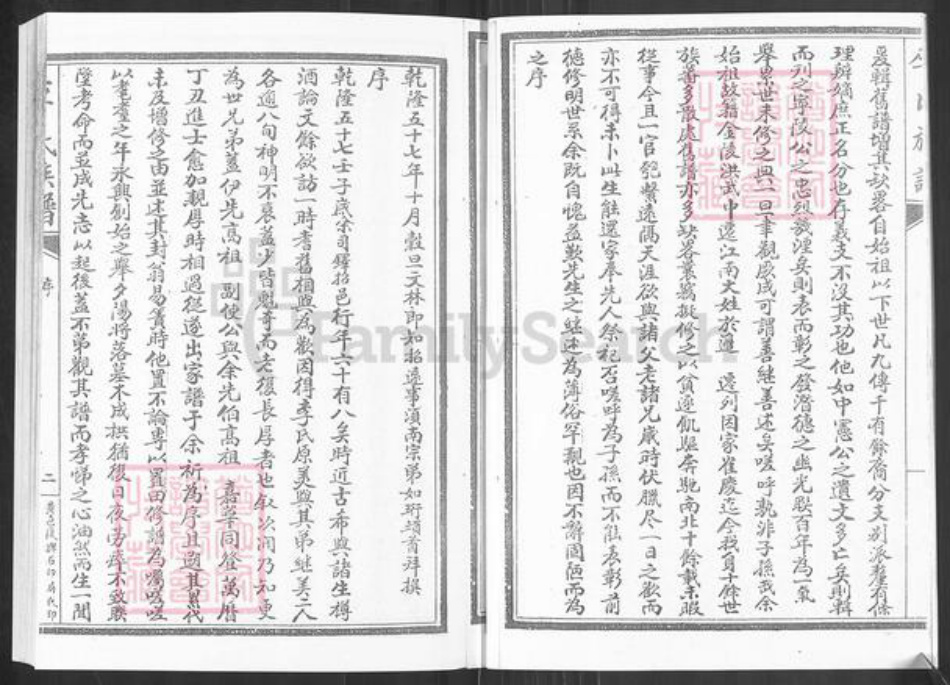 爰輯舊譜增其缺畧自始祖以下世凡九傳千有餘裔分支別派釐有條
理辨嫡庶正名分也存義支不沒其功也他如中憲公之遺文多亡矣則輯
而列之寧陵公之忠烈就湮矣則表而彰之發潛德之幽光歇百年為一氣
舉累世未修之典一旦聿觀厥成可謂善継善述矣嗟呼孰非子孫哉余
始祖故籍金陵洪武中遷江南大姓於潼遷列因家崔慶迄今我身十餘世
族蕃多散處舊譜亦多缺畧曩嘗擬修之以貧逐飢驅奔馳南北十餘載未暇
從事今且一官匏繫遠隔天涯欲與諸父老諸兄歲時伏臘尽一日之歡而
亦不可得未卜此生能還家奉先人祭祀否嗟呼為子孫而不能表彰前
德修明世系余既自愧益歎先生之継述為薄俗罕覯也因不辭固陋而為
之序
乾隆五十七年十月穀旦文林郎知拾遺事湏南宗弟如珩頓首拜撰
序
乾隆五十七壬子歲余司鐸招邑行年六十有八矣時近古希與諸生樽
酒論文餘欲訪一時耆舊相與為歡因得李氏原美與其弟継美二人
各逾八旬神明不衰蓋少皆魁竒而老復長厚者也叙次間乃知更
為世兄弟蓋伊先高祖 副使公與余先伯高祖 嘉峯同登萬曆
丁丑進士愈加親厚時相過從遂出家譜于余祈為序且題其累代
未及增修之由並述其封翁易簀時他置不論専以置田修譜為囑嗟嗟
以耄耋之年永興創始之舉夕陽將落墓木成拱猶復日夜勞瘁不敢聯
墜考命而並成先志以起後蓋不第觀其譜而孝悌之心油然而生一開
序
二
李氏族譜